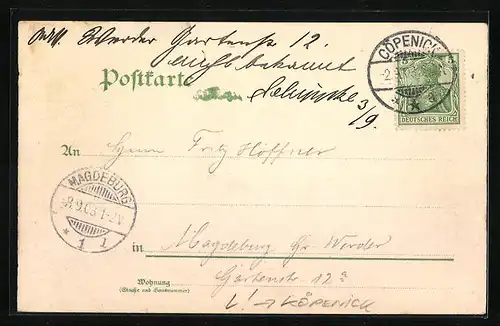 Werder Gartenstr 12.
nicht bekannt
Postkarte
3/9.
CÖPENICK
-2.9.03
* a
DEUTSCHES REICH
An Herrn Fritz Höffner
MAGDEBURG
-3.9.03 1-2N
* 1 1
in Magdeburg Gr. Werder
Wohnung
(Straße und Hausnummer)
Gartenstr 12a
L! → KÖPENICK